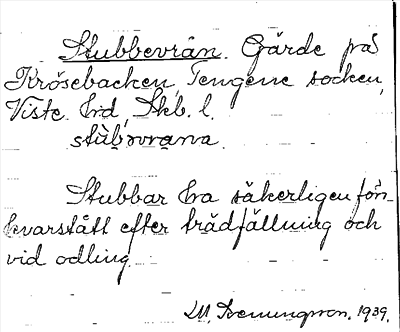 Stubbevrån. Gärde på
Krösebacken, Tengene socken,
Viste hd, Skb. l.
stùb̀ævrąna.
Stubbar ha säkerligen för-
kvarstått efter trädfällning och
vid odling.
M. 1939.